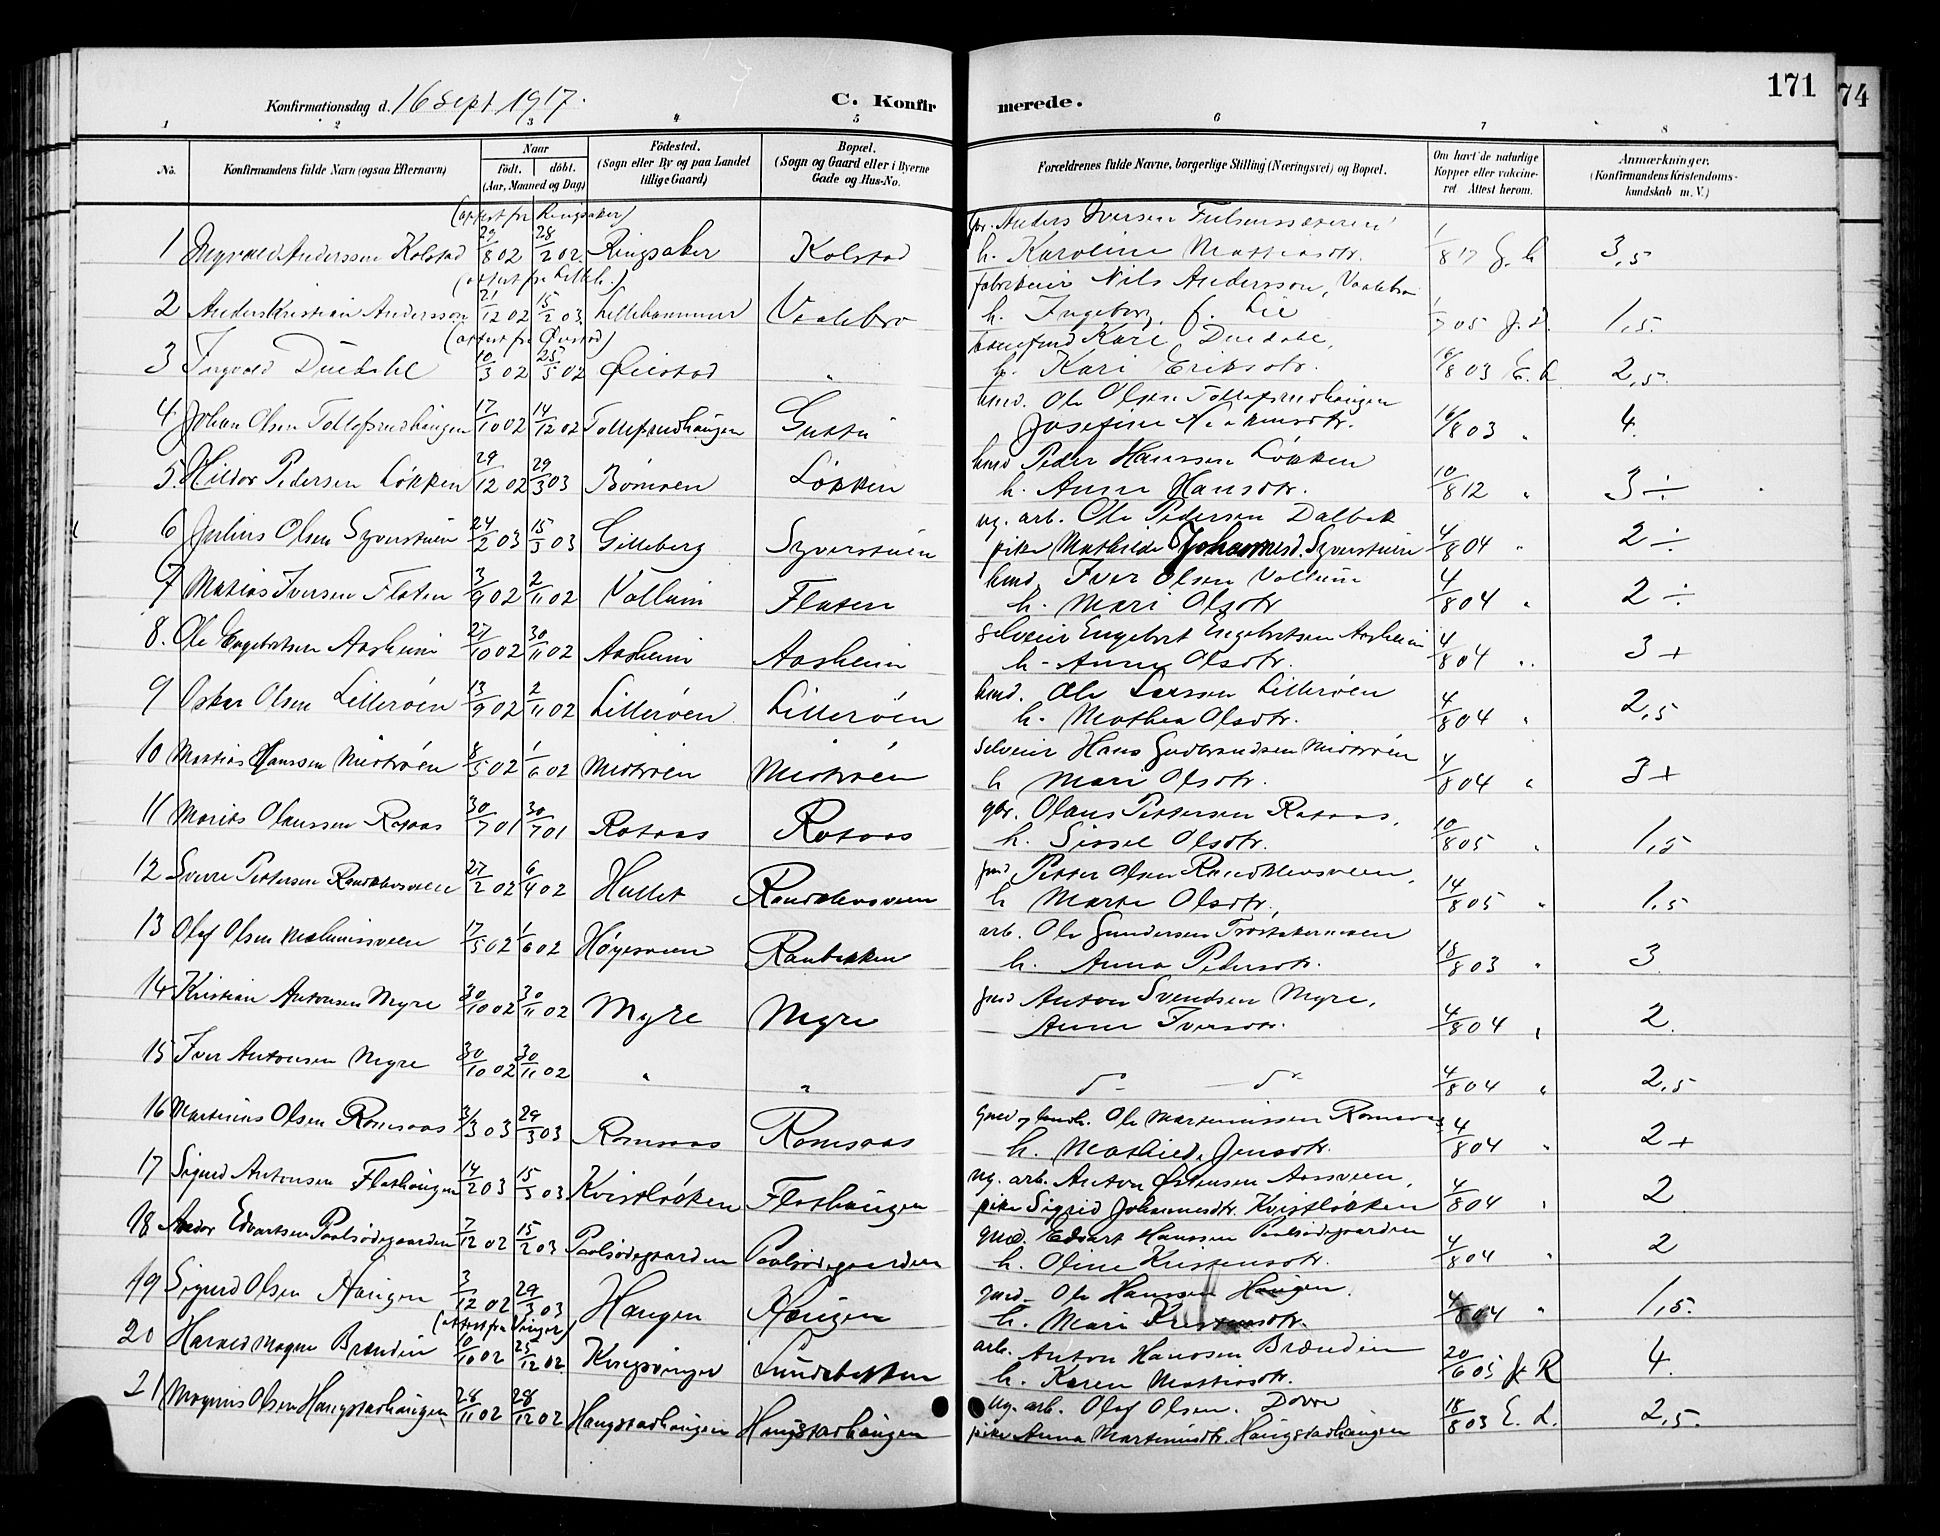 171
74
Konfirmationsdag d. 16 Sept 1917. C. Konfir merede.
1 2 3 4 5 6 7 8
No. Konfirmandens fulde Navn (ogsaa Efternavn) Naar født. døbt. (Aar, Maaned og Dag) Fødested. (Sogn eller By og paa Landet tillige Gaard) Bopæl. (Sogn og Gaard eller i Byerne Gade og Hus-No. Forældrenes fulde Navne, borgerlige Stilling (Næringsvei) og Bopæl. Om havt de naturlige Kopper eller vaccineret Attest herom. Anmærkninger. (Konfirmandens Kristendomskundskab m. V.)
(attest fra Ringsaker) Anders Iversen
1 Anderssen Kolstad 28/2 02 Ringsaker Kolstad h. Karoline 1/8 17 3,5
(attest fra Lilleh.) Nils Andersson, Vaalebro
2 Anders Kristian Andersson 21/12 02 15/2 03 Lillehammer Vaalebro h. Ingeborg f. Lie 1,5.
(attest fra Øiestad) Kari Duedahl,
3 Ingvald Duedahl 10/3 02 25/5 02 Øiestad " h. Kari Eriksdtr. 16/8 03 2,5.
husmd. Ole Olsen Tollefsrudhaugen
4 Johan Olsen Tollefsrudhaugen 17/10 02 14/12 02 Tollefsrudhaugen Josefine 16/8 03 " 4.
husmd Peder Hanssen Løkken
5. Hildor Pedersen Løkken 29/12 02 29/3 03 Bømoen Løkken h. Anne Hansdtr. 10/8 12 " 3 ÷
ug. arb. Ole Pedersen Dalbak
6 Julius Olsen Syverstuen 24/2 03 15/3 03 Gilleberg Syverstuen pike Mathilde Johannesd. Syverstuen 4/8 04 " 2 ÷
husmd. Iver Olsen Vollum
7 Matias Iversen Flaten 3/9 02 2/11 02 Vollum Flaten h. Mari Olsdtr 4/8 04 " 2 ÷
selveier Engebret Engebretsen Aasheim
8. Ole Engebretsen Aasheim 27/10 02 30/11 02 Aasheim Aasheim h. Anne Olsdtr. 4/8 04 " 3 +
husmd. Ole Larssen Lillerøen
9 Oskar Olsen Lillerøen 13/9 02 2/11 02 Lillerøen Lillerøen h. Mathea Olsdtr. 4/8 04 " 2,5
Selveier Hans Gudbrandsen Midtrøen
10 Mathias Hanssen Midtrøen 8/5 02 1/6 02 Midtrøen Midtrøen h Mari Olsdtr. 4/8 04 " 3 +
gbr. Olaus Pettersen Rotaas,
11 Olaussen Rotaas 30/7 01 Rotaas Rotaas h. Sissel Olsdtr. 10/8 05 " 1,5
Petter Olsen Randklevsveen,
12 Sverre Pettersen Randklevsveen 27/2 02 6/4 02 Hullet Randklevsveen h Marte Olsdtr, 14/8 05 " 1,5
arb. Ole Gundersen
13 Olaf Olsen 17/5 02 1/6 02 Høyesveen Raubakken h. Anna Pedersdtr. 15/8 03 " 3
Anton Svendsen Myre,
14 Kristian Antonsen Myre 30/10 02 30/11 02 Myre Myre Anne Iversdtr. 4/8 04 " 2.
15 Iver Antonsen Myre 30/10 02 30/11 02 " " do do 4/8 04 " 2,5
Ole Martinussen Romsaas
16 Martinius Olsen Romsaas 3/3 03 29/3 03 Romsaas Romsaas h. Mathilde Jensdtr. 4/8 04 " 2 +
ug. arb. Anton Østensen Aassveen,
17 Sigurd Antonsen Flathaugen 14/2 03 15/3 03 Kvistløkken Flathaugen pike Sigrid Johannesdtr. Kvistløkken 4/8 04 " 2
Edvart Hanssen Paalsødegaarden
18 Edvartsen Paalsødegaarden 7/12 02 15/2 03 Paalsødegaarden Paalsødegaarden h. Oline Kristensdtr. 4/8 04 " 2
Ole Hanssen Haugen.
19 Sigurd Olsen Haugen 3/12 02 29/3 03 Haugen Haugen h. Mari 4/8 04 " 1,5.
(attest fra Vinger) arb. Anton Hanssen Brænden
20 Harald Magne Brænden 10 02 25/12 02. Kongsvinger h. Karen Mathiasdtr. 20/6 05 R 4.
ug. arb. Olaf Olsen. Dovre
21 Magnus Olsen Haugstadhaugen 28/11 02 28/12 02 Haugstadhaugen Haugstadhaugen pike Anna Martinusdtr. Haugstadhaugen 18/8 03 E. L. 2,5.